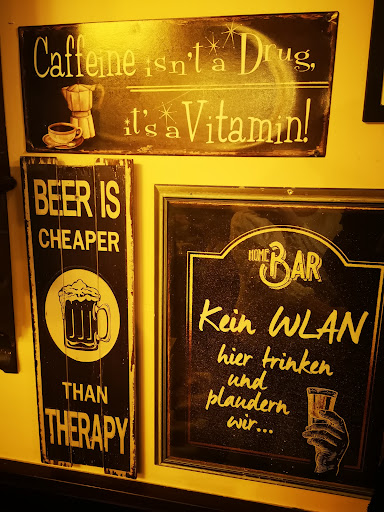 Caffeine isn't a Drug,
it's a Vitamin!
BEER IS
CHEAPER
THAN
THERAPY
HOME BAR
Kein WLAN
hier trinken
und
plaudern
wir...